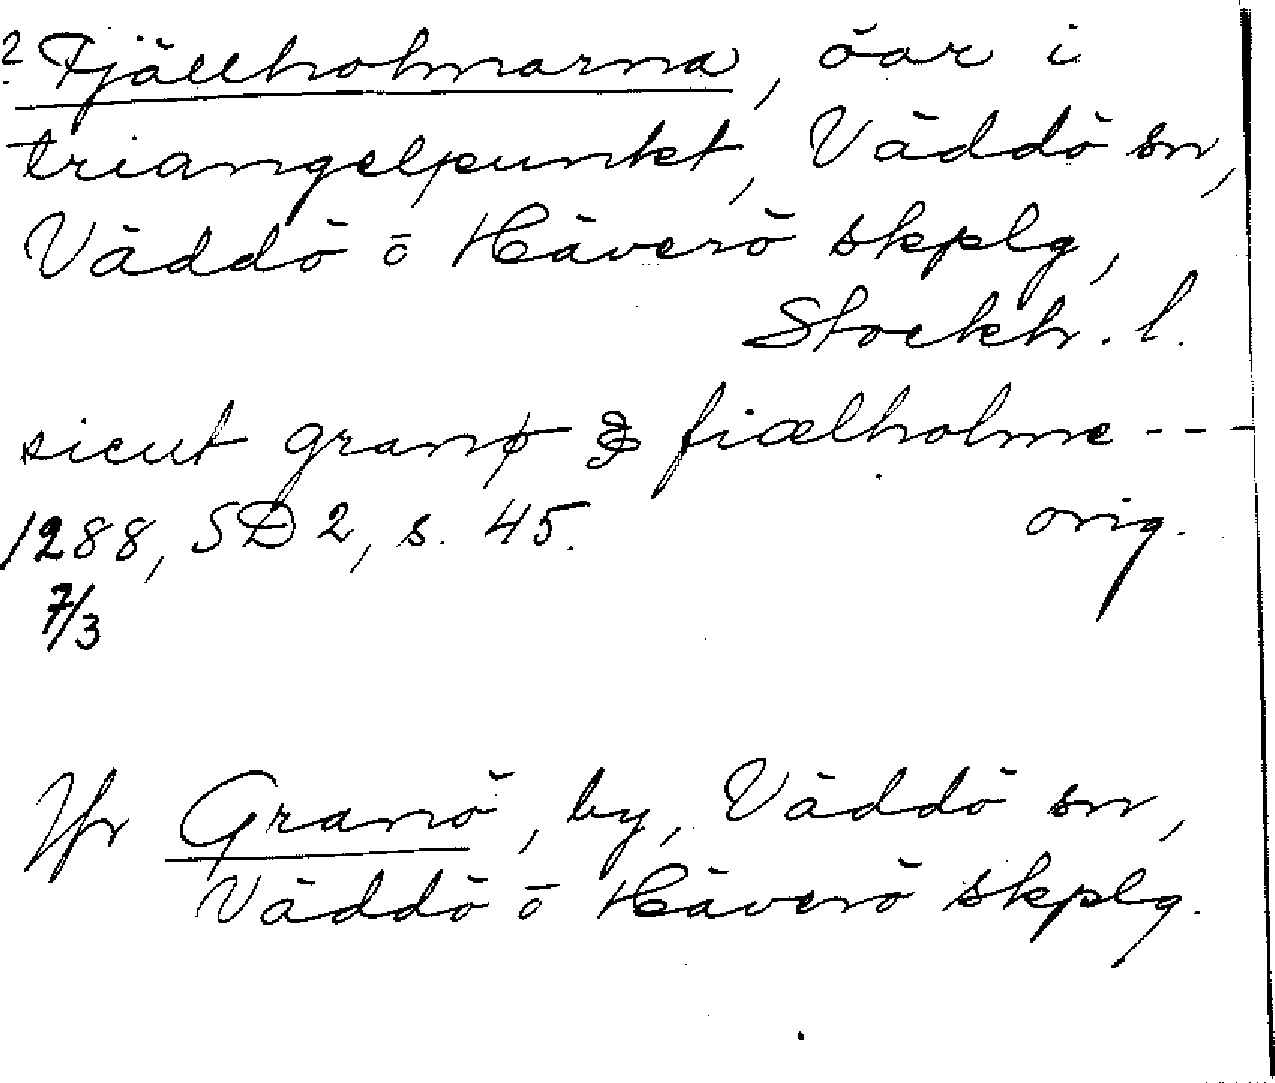 ? Fjällholmarna, öar i
triangelpunkt, Väddö sn,
Väddö o Häverö skplg,
Stockh. l.
sicut granø & fiælholme ---
1288, SD 2, s. 45. orig.
7/3
Jfr Granö, by, Väddö sn,
Väddö o Häverö skplg.